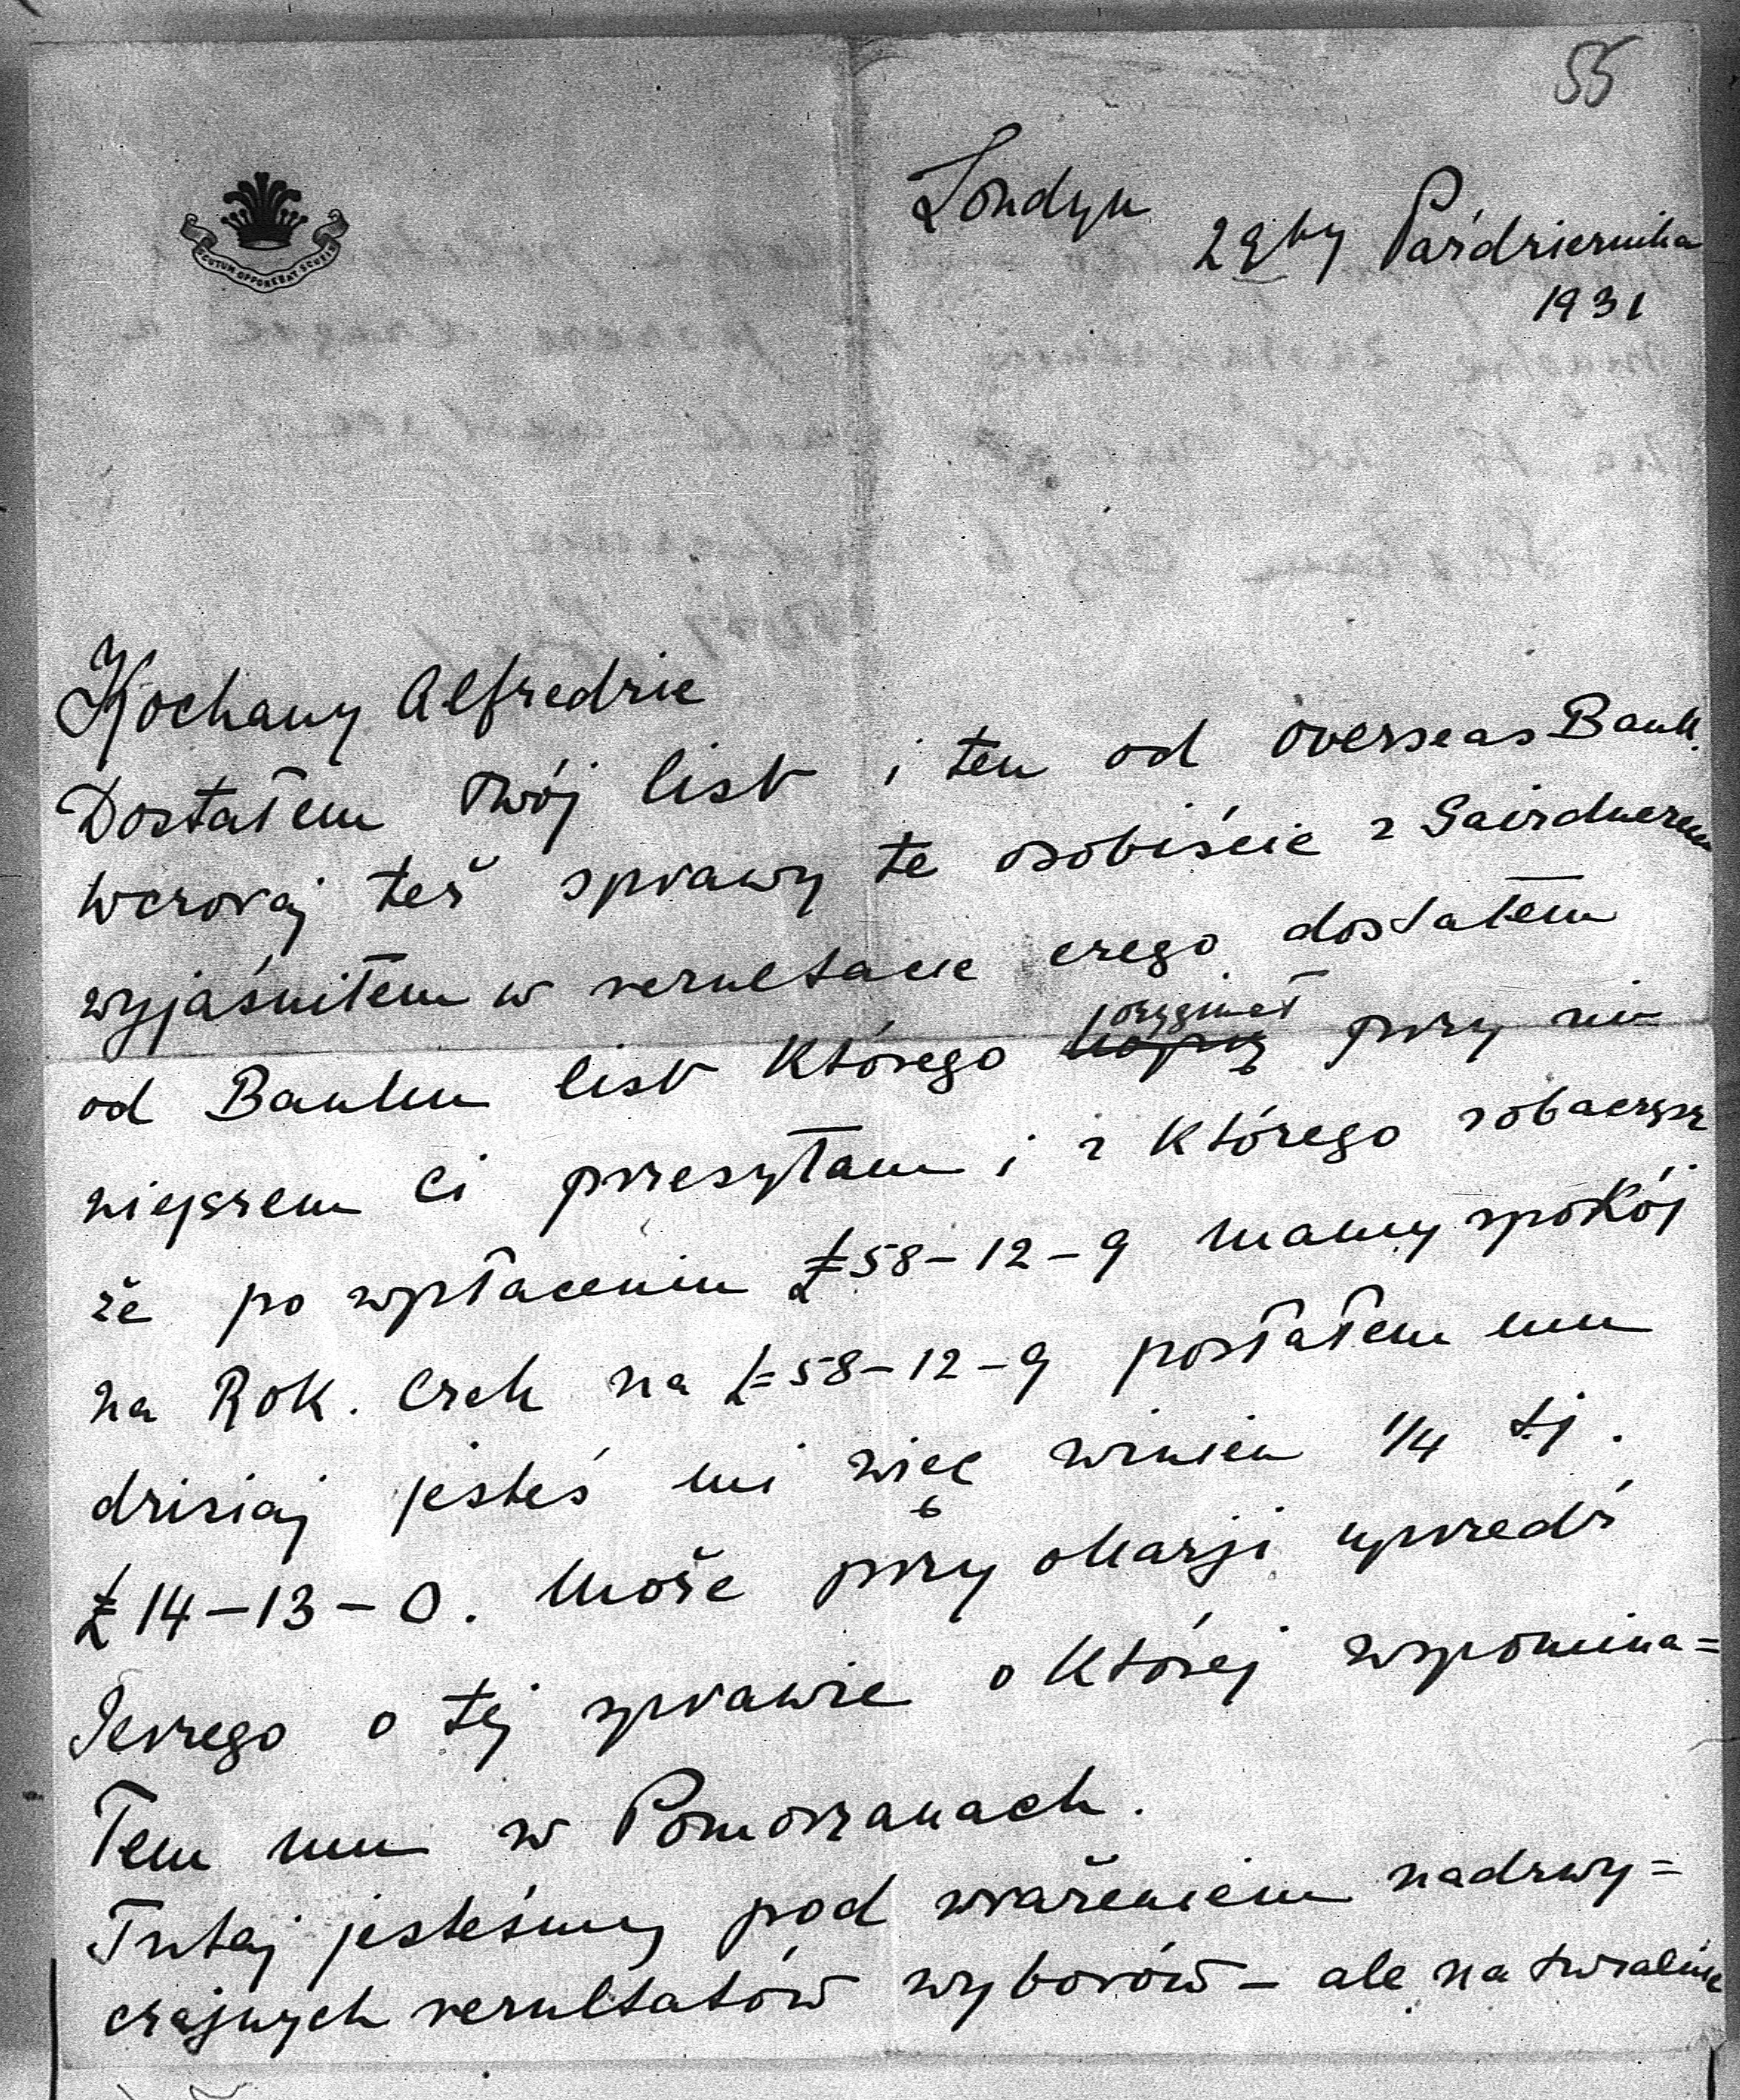 55
SCUTUM OPPONEBAT SCUTIS
Londyn
29ty Października
1931
Kochany Alfredzie
Dostałem Twój list i ten od Overseas Bank.
Wczoraj też sprawy te osobiście z Gairdnerem
wyjaśniłem w rezultacie czego dostałem
oryginał
od Banku list którego kopię przy ni-
niejszem Ci przesyłam i z którego zobaczysz
że po wpłaceniu £58-12-9 mamy spokój
na Rok. Czek na £58-12-9 posłałem mu
dzisiaj jesteś mi więc winien 1/4 t.j.
£14-13-0. Może przy okazji uprzedź
Jerzego o tej sprawie o której wspomina=
łem mu w Pomorzanach.
Tutaj jesteśmy pod wrażeniem nadzwy=
czajnych rezultatów wyborów - ale naturalnie